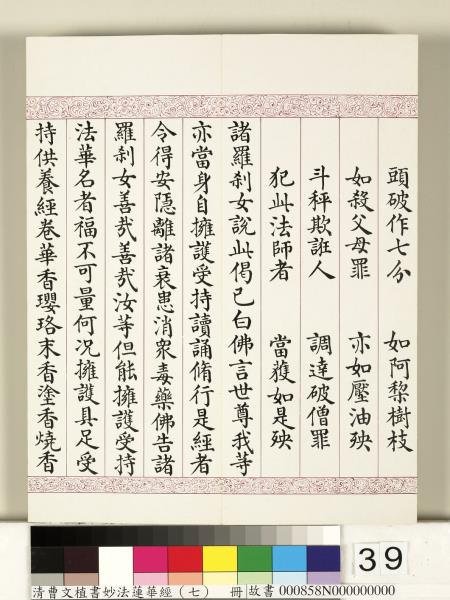 頭破作七分　如阿黎樹枝
如殺父母罪　亦如壓油殃
斗秤欺誑人　調達破僧罪
犯此法師者　當獲如是殃
諸羅刹女說此偈已白佛言世尊我等
亦當身自擁護受持讀誦脩行是經者
令得安隱離諸衰患消衆毒藥佛告諸
羅刹女善哉善哉汝等但能擁護受持
法華名者福不可量何况擁護具足受
持供養經卷華香瓔珞末香塗香燒香
39
清曹文植書妙法蓮華經（七）　冊 故書 000858N000000000